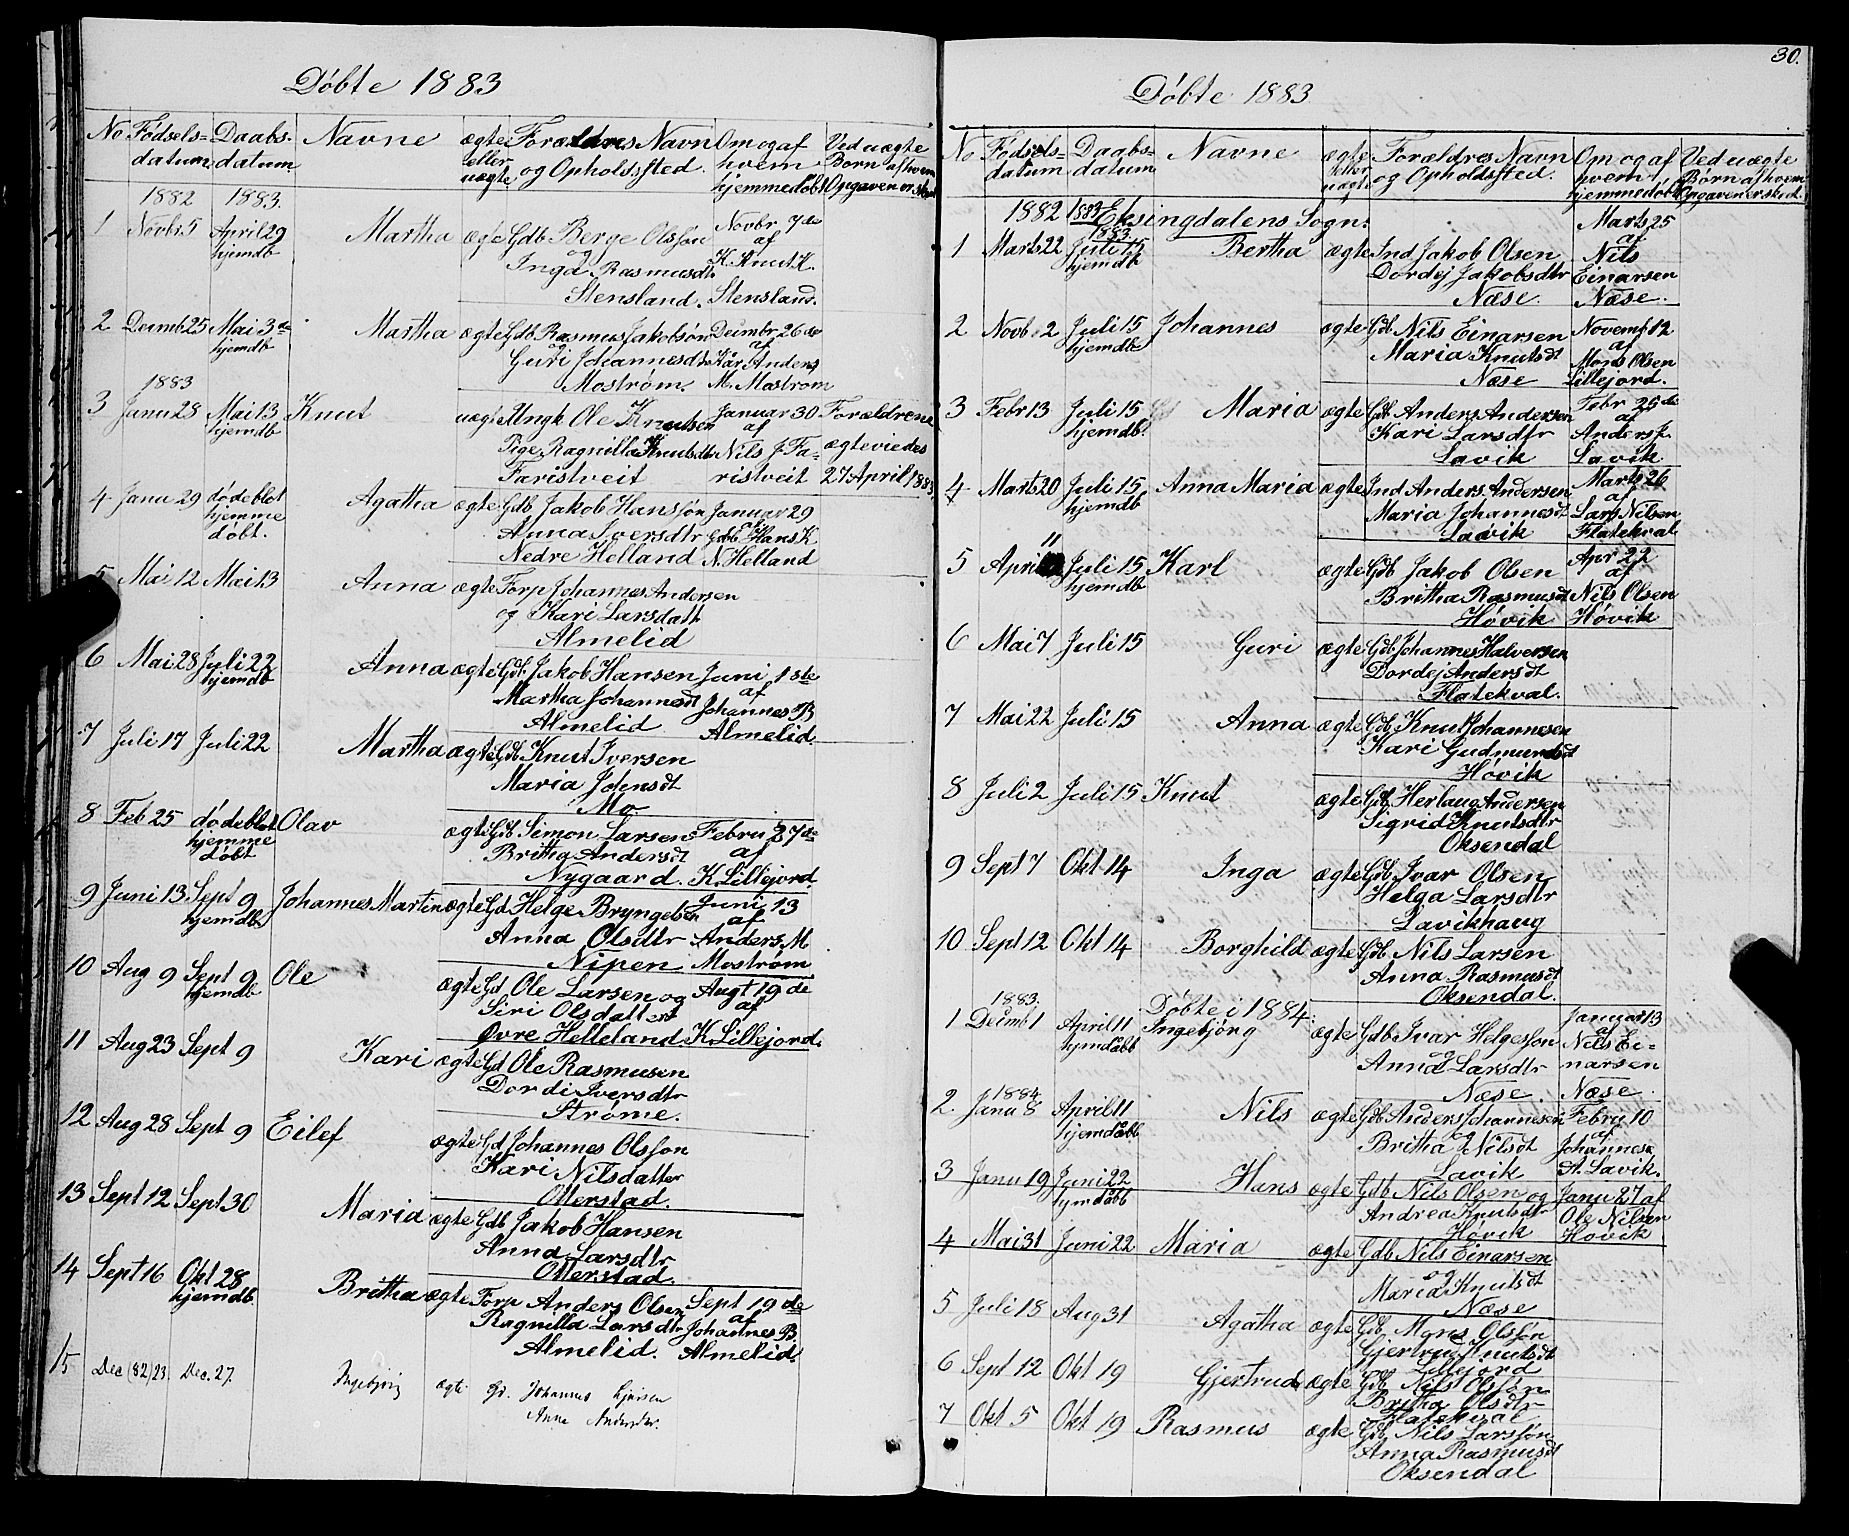 Döbte 1883
No Fødsels= Daabs- Navne ægte Forældres Navn Om og af Ved uægte
datum datum eller og Opholdssted. hvem Børn af hvem
uægte hjemmedøbt Opgaven er skeet
1882 1883.
1 Novbr 5 April 29 Martha ægte Gdb Berge Olsson Novbr 7de
hjemdb og af
Inga Rasmusdtr K. Knut K.
Stensland. Stensland.
2 Decmb 25 Mai 3de Martha ægte Gdb Rasmus Jakobsøn Decmbr 26de
hjemdb og af
Guri Johannesdtr Kår Anders
Mostrøm. M. Mostrøm
1883
3 Janu 28 Mai 13 Knut uægte Ungk Ole Knutsen Januar 30 Forældrene
hjemdb af
Pige Ragnilla Knutsdt Nils J Fa- ægteviedes
Faristveit ristveit 27 April 1883.
4 Janu 29 dødeblot Agatha ægte Gdb Jakob Hanssøn Januar 29
hjemme af
døbt. Anna Iversdtr Gdb Hans K
Nedre Helland N. Helland
5 Mai 12 Mai 13 Anna ægte Forp Johannes Andersen
og Kari Larsdatt
Almelid
6 Mai 28 Juli 22 Anna ægte Gdb Jakob Hansen Juni 1ste
hjemdb af
Martha Johannesdt Johannes B
Almelid Almelid.
7 Juli 17 Juli 22 Martha ægte Gdb Knut Iversen
Maria Johnsdt
Mo
8 Feb 25 dødeblot Olav ægte Gdb Simon Larsen Febru 27de
hjemme af
døbt Britha Andersdt
Nygaard. K. Lillejord.
9 Juni 13 Sept 9 Johannes Martin ægte Gd Helge Bryngelsen Juni 13
hjemdb. af
Anna Olsdtr Anders M
Nipen Mostrøm
10 Aug 9 Sept 9 Ole ægte Gd Ole Larsen og Augt 19de
hjemdb af
Siri Olsdatter
Øvre Helleland K Lillejord.
11 Aug 23 Sept 9 Kari ægte Gd Ole Rasmusen
Dordi Iversdtr
Strøme.
12 Aug 28 Sept 9 Eilef ægte Gd Johannes Olsson
Kari Nilsdatter
Otterstad.
13 Sept 12 Sept 30 Maria ægte Gdb Jakob Hansen
Anna Larsdtr
Otterstad.
14 Sept 16 Okt 28 Britha ægte Forp Anders Olsen Sept 19de
hjemdb. af
Ragnilla Larsdtr Johannes B.
Almelid. Almelid.
15 Dec (82) 23. Dec. 27. Ingebjörg ægte Gd. Johannes
Anna Andersdtr.
30.
Döbte 1883
No Fødsels= Daabs= Navne ægte Forældres Navn Om og af Ved uægte
datum datum eller og Opholdssted. hvem Børn af hvem
uægte hjemmedøbt Opgaven er skeet.
1882 1883 Eksingdalens Sogn.
1883. Marts 25
1 Marts 22 Juli 15 Bertha ægte Ind Jakob Olsen af Nils
hjemdb Dordej Jakobsdtr Einarsen
Næse. Næse.
2 Novb 2 Juli 15 Johannes ægte Gdb Nils Einarsen Novemb 12
hjemdb af
Maria Knutsdt Mons Olsen
Næse Lillejord.
3 Febr 13 Juli 15 Maria ægte Gdb Anders Andersen Febr 25de
hjemdb. af
Kari Larsdtr Anders J.
Lavik Lavik
4 Marts 20 Juli 15 Anna Maria ægte Ind Anders Andersen Marts 26
hjemdb af
Maria Johannesdt Lars Nilsen
Lavik Flatekval
5 April 11 Juli 15 Karl ægte Gdb Jakob Olsen Apr 22
hjemdb af
Britha Rasmusdt Nils Olsen
Høvik Høvik
6 Mai 7 Juli 15 Guri ægte Gdb Johannes Halversen
Dordej Andersdt
Flatekval.
7 Mai 22 Juli 15 Anna ægte Gdb Knut Johannesen
Kari Gudmundsdt
Høvik
8 Juli 2 Juli 15 Knut ægte Gdb Herlaug Andersen
Sigrid Knutsdtr
Oksendal
9 Sept 7 Okt 14 Inga ægte Gdb Ivar Olsen
Helga Larsdtr
Lavikhaug
10 Sept 12 Okt 14 Borghild ægte Gdb Nils Larsen
Anna Rasmusdt
Oksendal.
1883. Döbte i 1884.
1 Decmb 1 April 11 Ingebjörg ægte Gdb Ivar Helgesson Januar 13
hjemdøbb og af
Anna Larsdtr Nils Ei-
narsen
Næse. Næse.
1884.
2. Janu 8 April 11 Nils ægte Gdb Anders Johannesen Febru 10
hjemdøbb og af
Britha Nilsdt Johannes
Lavik A. Lavik.
3 Janu 19 Juni 22 Hans ægte Gdb Nils Olsen og Janu 27 af
hjemdøbb Andrea Knutsdtr Ole Nilsen
Høvik Høvik
4 Mai 31 Juni 22 Maria ægte Gdb Nils Einarsen
og
Maria Knutsdt
Næse
5 Juli 18 Aug 31 Agatha ægte Gdb. Mons Olssøn
Gjertrud Knutsdt
Lillejord
6 Sept 12 Okt 19 Gjertrude ægte Gdb Nils Olssøn
Britha Olsdtr
Flatekval
7 Okt 5 Okt 19 Rasmus ægte Gdb Nils Larssøn
Anna Rasmusdt
Oksendal